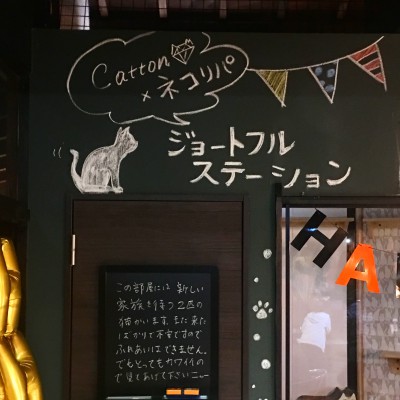 Catton
×ネコリパ
ジョートフル
ステーション
HA
この部屋には 新しい
家族を待つ2匹の
猫がいます。まだ来た
ばかりで不安ですので
ふれあいはできません。
でもとってもカワイイの
で見てあげて下さいニャー